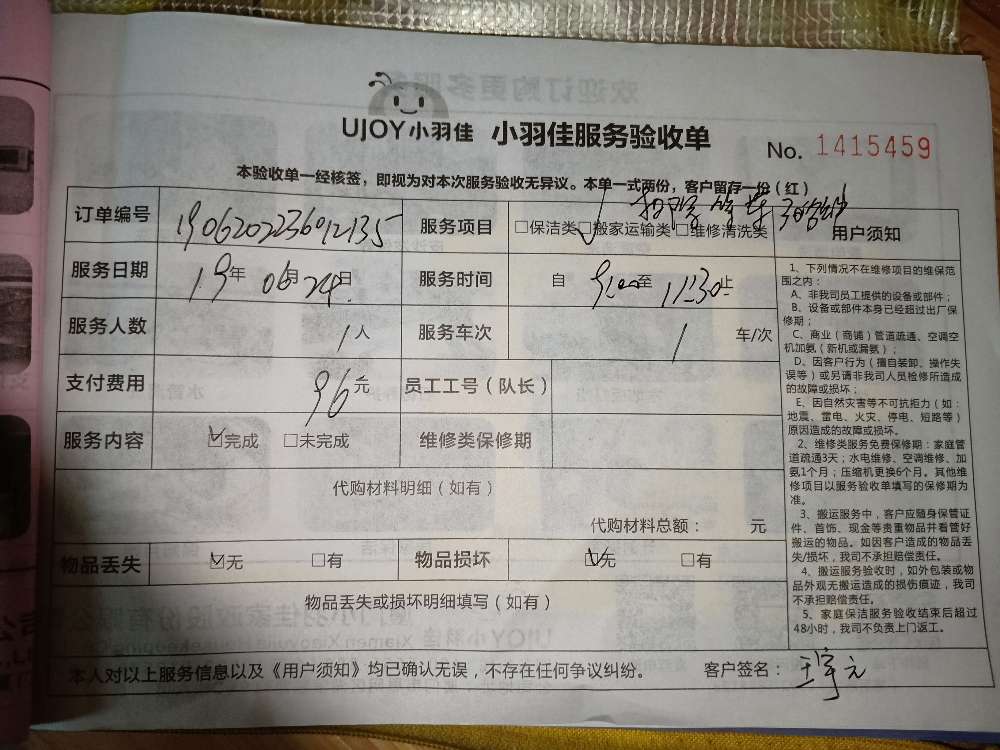 UJOY小羽佳 小羽佳服务验收单 No. 1415459
本验收单一经核签，即视为对本次服务验收无异议。本单一式两份，客户留存一份（红）
订单编号 服务项目 □保洁类□搬家运输类□维修清洗类 用户须知
服务日期 19年 06月 24日 服务时间 自 9:00至 11:30止
服务人数 1人 服务车次 1 车/次
支付费用 96元 员工工号（队长）
服务内容 ☑完成 □未完成 维修类保修期
代购材料明细（如有）
代购材料总额： 元
物品丢失 ☑无 □有 物品损坏 ☑无 □有
物品丢失或损坏明细填写（如有）
1、下列情况不在维修项目的维保范
围之内：
A、非我司员工提供的设备或部件；
B、设备或部件本身已经超过出厂保
修期；
C、商业（商铺）管道疏通、空调空
机加氨（新机或漏氨）；
D、因客户行为（擅自装卸、操作失
误等）或另请非我司人员检修所造成
的故障或损坏；
E、因自然灾害等不可抗拒力（如：
地震、雷电、火灾、停电、短路等）
原因造成的故障或损坏。
2、维修类服务免费保修期：家庭管
道疏通3天；水电维修、空调维修、加
氨1个月；压缩机更换6个月。其他维
修项目以服务验收单填写的保修期为
准。
3、搬运服务中，客户应随身保管证
件、首饰、现金等贵重物品并看管好
搬运的物品。如因客户造成的物品丢
失/损坏，我司不承担赔偿责任。
4、搬运服务验收时，如外包装或物
品外观无搬运造成的损伤痕迹，我司
不承担赔偿责任。
5、家庭保洁服务验收结束后超过
48小时，我司不负责上门返工。
本人对以上服务信息以及《用户须知》均已确认无误，不存在任何争议纠纷。 客户签名：